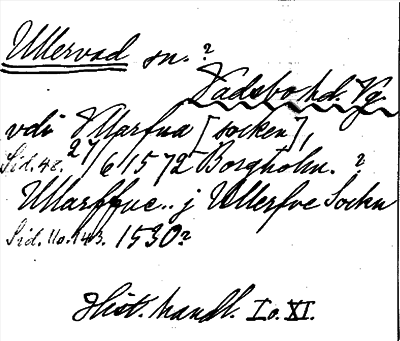 Ullervad sn. ?
Vadsbo hd. Vg.
vdi Ullarfua [socken],
Sid. 48. 27/6 1572 Borgholm. ?
Ullarffue.. j Ullerfve Sockn
Sid. 110. 143. 1530?
Hist. handl. I o. XI.